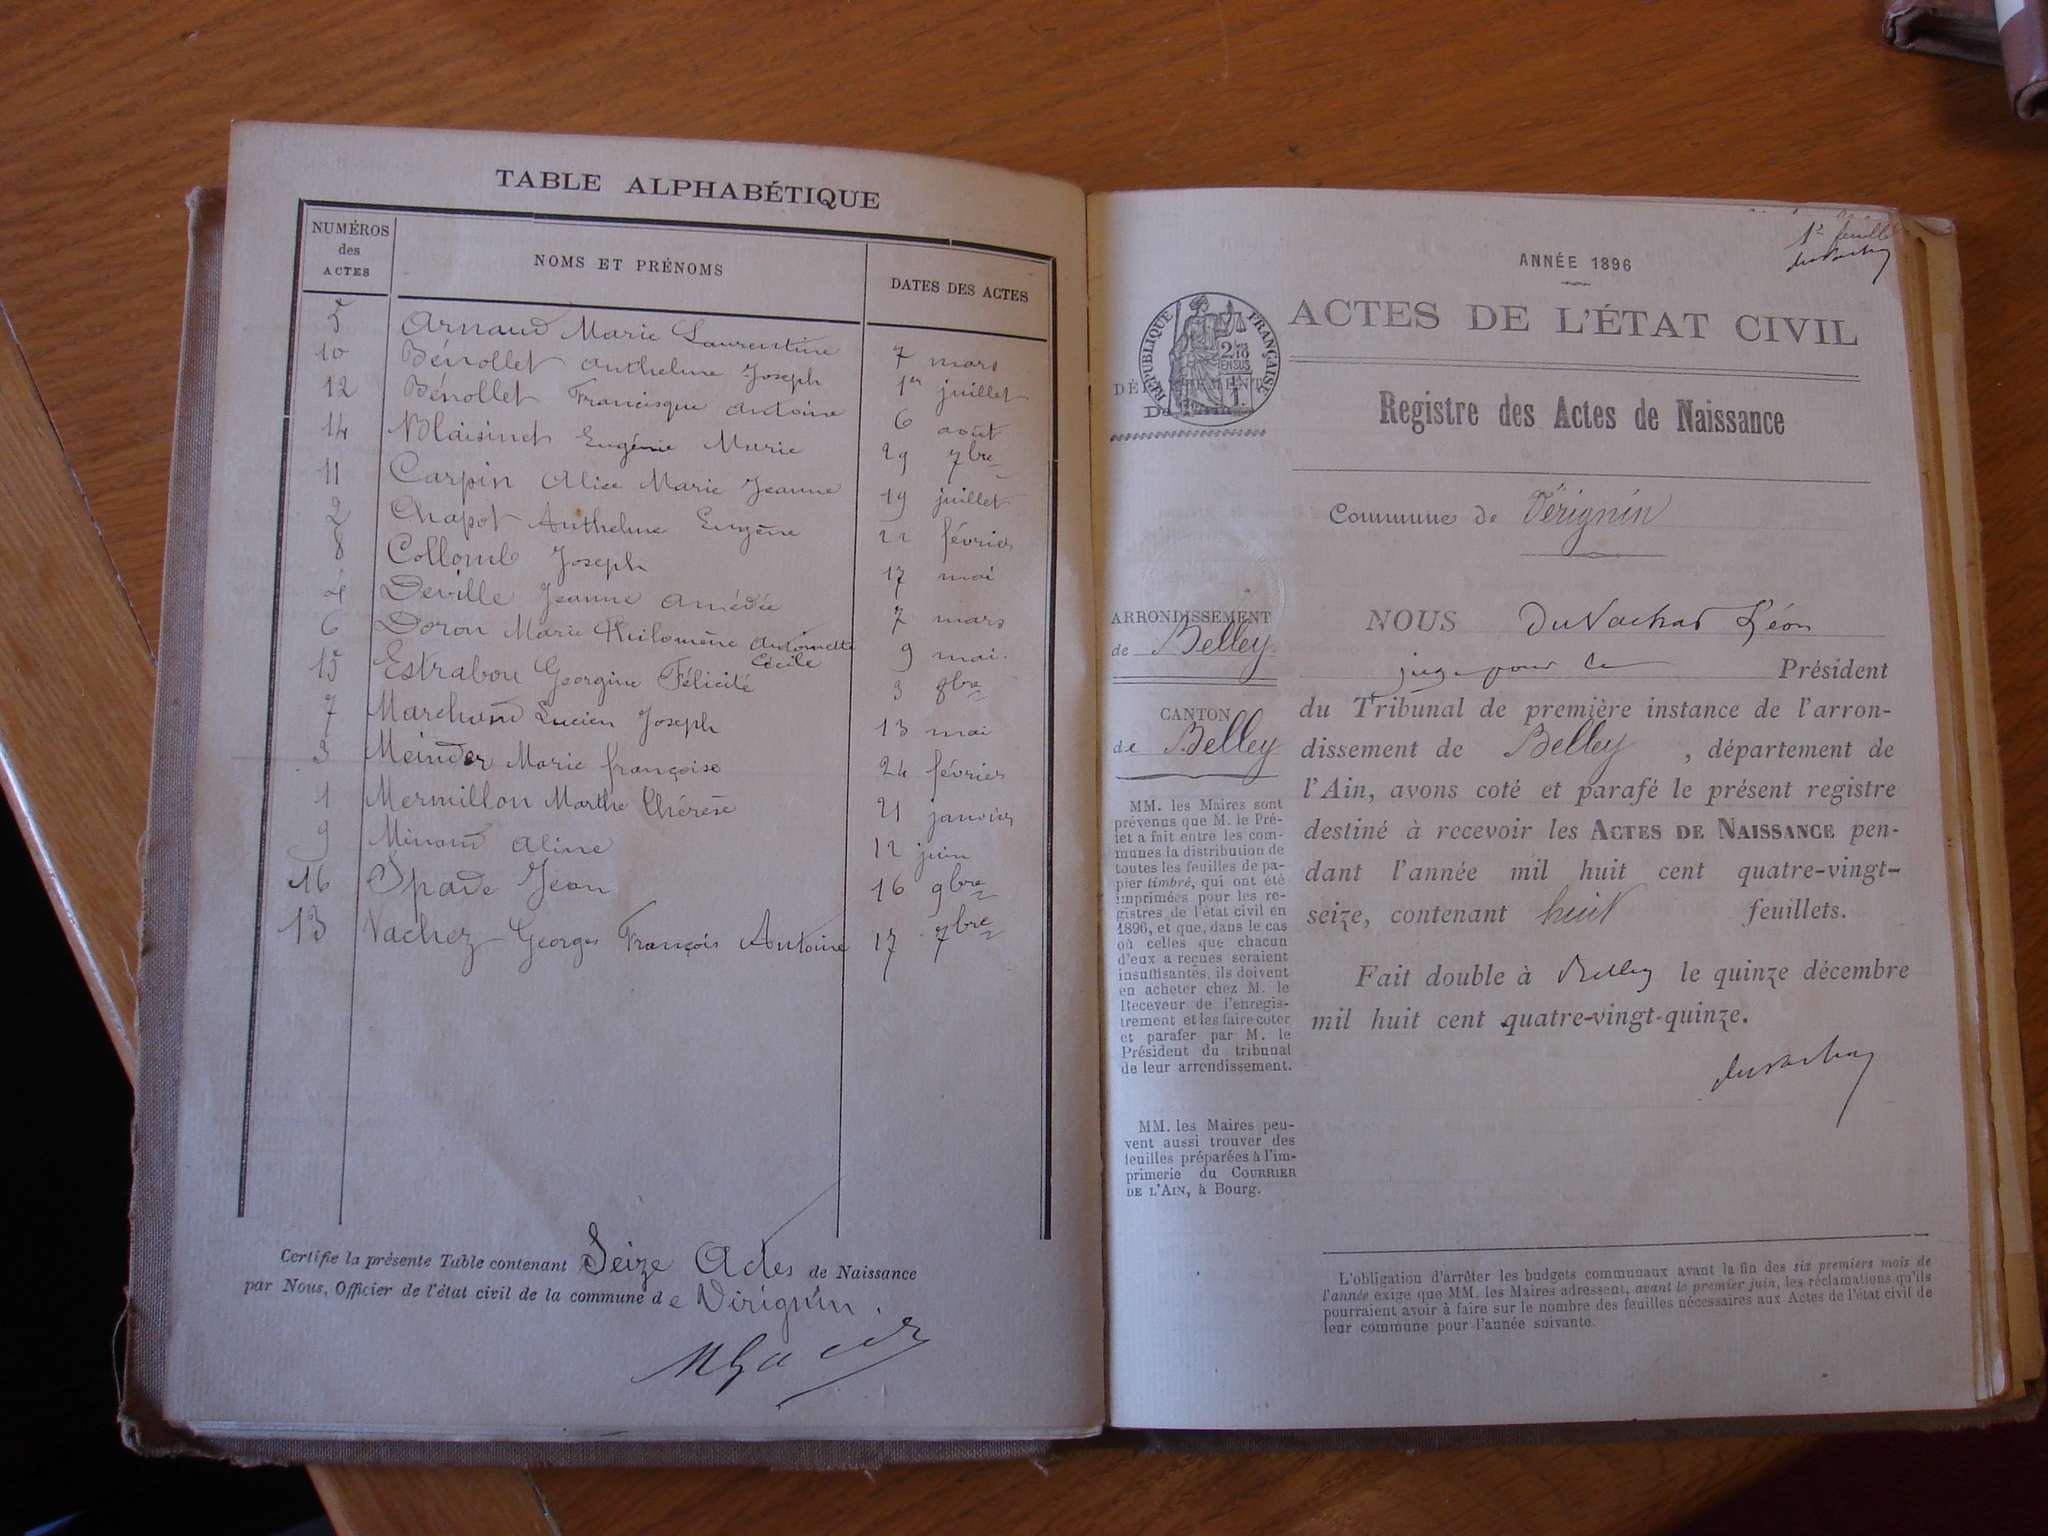 TABLE ALPHABÉTIQUE
NUMÉROS des ACTES
NOMS ET PRÉNOMS
DATES DES ACTES
5 Arnaud Marie Laurentine 7 mars
10 Bénollet Anthelme Joseph 1er juillet
12 Bénollet Francisque Antoine 6 août
14 Blaisinet Eugénie Marie 29 7bre
11 Carpin Alice Marie Jeanne 19 juillet
2 Chapot Anthelme Eugène 22 février
8 Collomb Joseph 17 mai
4 Deville Jeanne Amédée 7 mars
6 Doron Marie Philomène Antoinette Cécile 9 mai
15 Estrabou Georgine Félicité 3 8bre
7 Marchand Lucien Joseph 13 mai
3 Meinder Marie françoise 24 février
1 Mermillon Marthe Thérèse 21 janvier
9 Minand Aline 12 juin
16 Spade Jean 16 9bre
13 Vachez Georges François Antoine 17 7bre
Certifie la présente Table contenant Seize Actes de Naissance
par Nous, Officier de l'état civil de la commune de Virignin.
1er feuillet
ANNÉE 1896
ACTES DE L'ÉTAT CIVIL
RÉPUBLIQUE FRANÇAISE
DÉPARTEMENT
Registre des Actes de Naissance
Commune de Vérignin
ARRONDISSEMENT
de Belley
CANTON
de Belley
MM. les Maires sont
prévenus que M. le Pré-
fet a fait entre les com-
munes la distribution de
toutes les feuilles de pa-
pier timbré, qui ont été
imprimées pour les re-
gistres de l'état civil en
1896, et que, dans le cas
où celles que chacun
d'eux a reçues seraient
insuffisantes, ils doivent
en acheter chez M. le
Receveur de l'enregis-
trement et les faire coter
et parafer par M. le
Président du tribunal
de leur arrondissement.
MM. les Maires peu-
vent aussi trouver des
feuilles préparées à l'im-
primerie du COURRIER
DE L'AIN, à Bourg.
NOUS DuVachat Léon
juge pour le Président
du Tribunal de première instance de l'arron-
dissement de Belley, département de
l'Ain, avons coté et parafé le présent registre
destiné à recevoir les ACTES DE NAISSANCE pen-
dant l'année mil huit cent quatre-vingt-
seize, contenant huit feuillets.
Fait double à Belley le quinze décembre
mil huit cent quatre-vingt-quinze.
L'obligation d'arrêter les budgets communaux avant la fin des six premiers mois de
l'année exige que MM. les Maires adressent, avant le premier juin, les réclamations qu'ils
pourraient avoir à faire sur le nombre des feuilles nécessaires aux Actes de l'état civil de
leur commune pour l'année suivante.